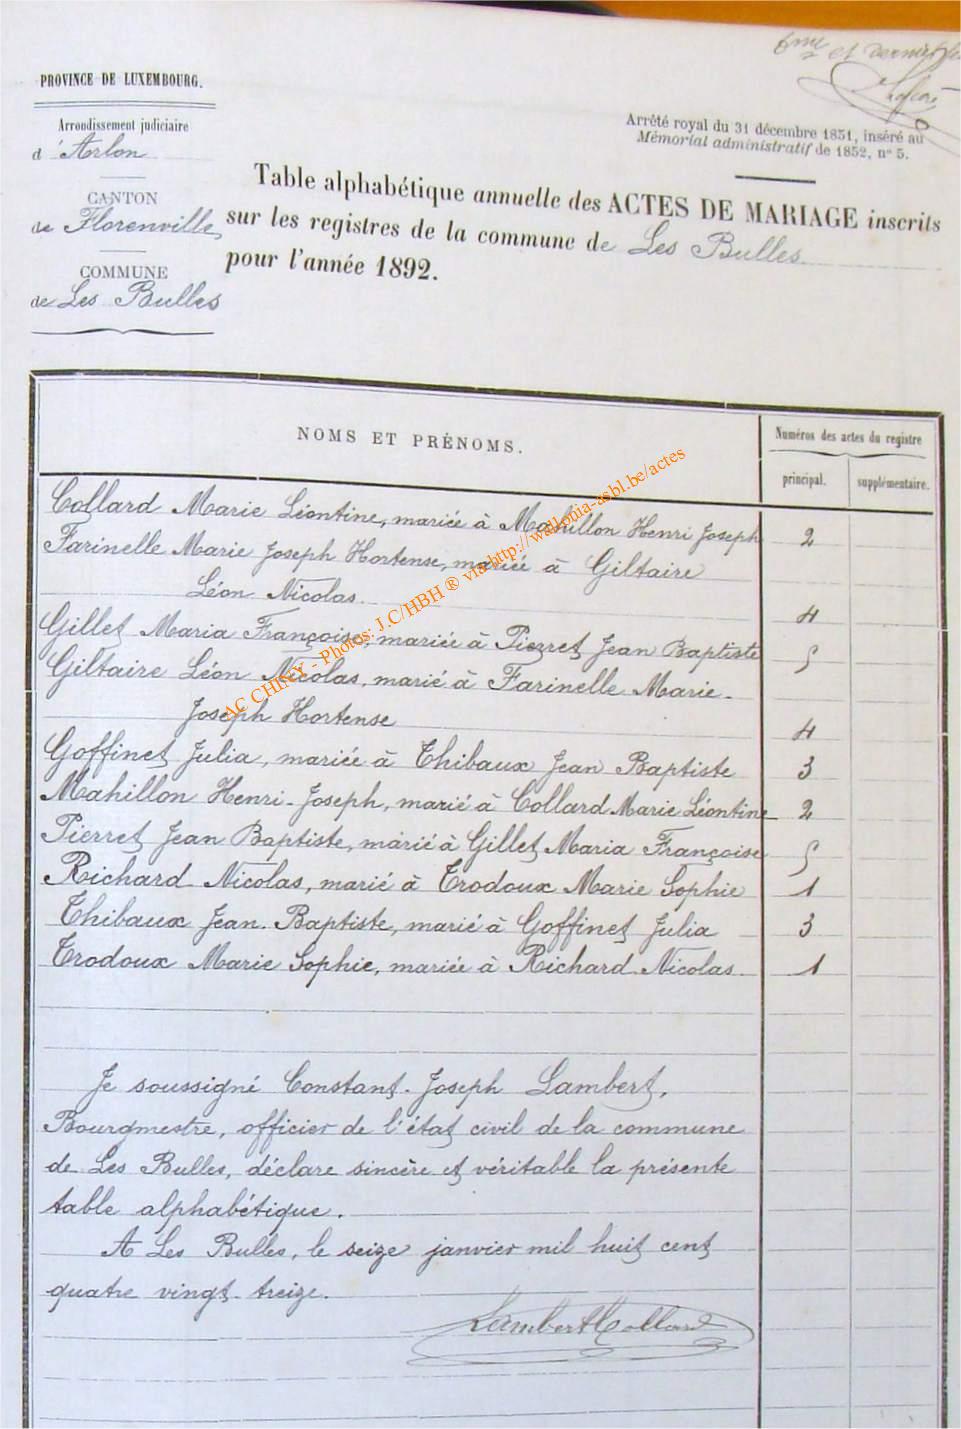 6me et dernier
PROVINCE DE LUXEMBOURG.
Arrondissement judiciaire
d'Arlon
CANTON
de Florenville
COMMUNE
de Les Bulles
Arrêté royal du 31 décembre 1851, inséré au
Mémorial administratif de 1852, n° 5.
Table alphabétique annuelle des ACTES DE MARIAGE inscrits
sur les registres de la commune de Les Bulles
pour l'année 1892.
NOMS ET PRÉNOMS.
Numéros des actes du registre
principal. supplémentaire.
Collard Marie Léontine, mariée à Mahillon Henri Joseph 2
Farinelle Marie Joseph Hortense, mariée à Giltaire
Léon Nicolas. 4
Gillet Maria Françoise, mariée à Pierret Jean Baptiste 5
Giltaire Léon Nicolas, marié à Farinelle Marie-
Joseph Hortense 4
Goffinet Julia, mariée à Thibaux Jean Baptiste 3
Mahillon Henri-Joseph, marié à Collard Marie Léontine 2
Pierret Jean Baptiste, marié à Gillet Maria Françoise 5
Richard Nicolas, marié à Trodoux Marie Sophie 1
Thibaux Jean-Baptiste, marié à Goffinet Julia 3
Trodoux Marie Sophie, mariée à Richard Nicolas. 1
Je soussigné Constant-Joseph Lambert,
Bourgmestre, officier de l'état civil de la commune
de Les Bulles, déclare sincère et véritable la présente
table alphabétique.
A Les Bulles, le seize janvier mil huit cent
quatre vingt-treize.
Lambert Collard
AC CHINY - Photos: J.C/HBH ® via http://wallonia-asbl.be/actes